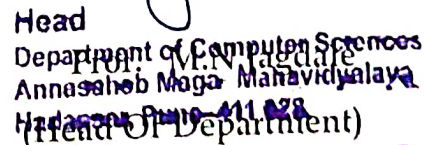 Head
Department of Computer Sciences
Prof. M.N Jagdale
Annasaheb Magar Mahavidyalaya
Hadapsar, Pune-411 028
(Head Of Department)